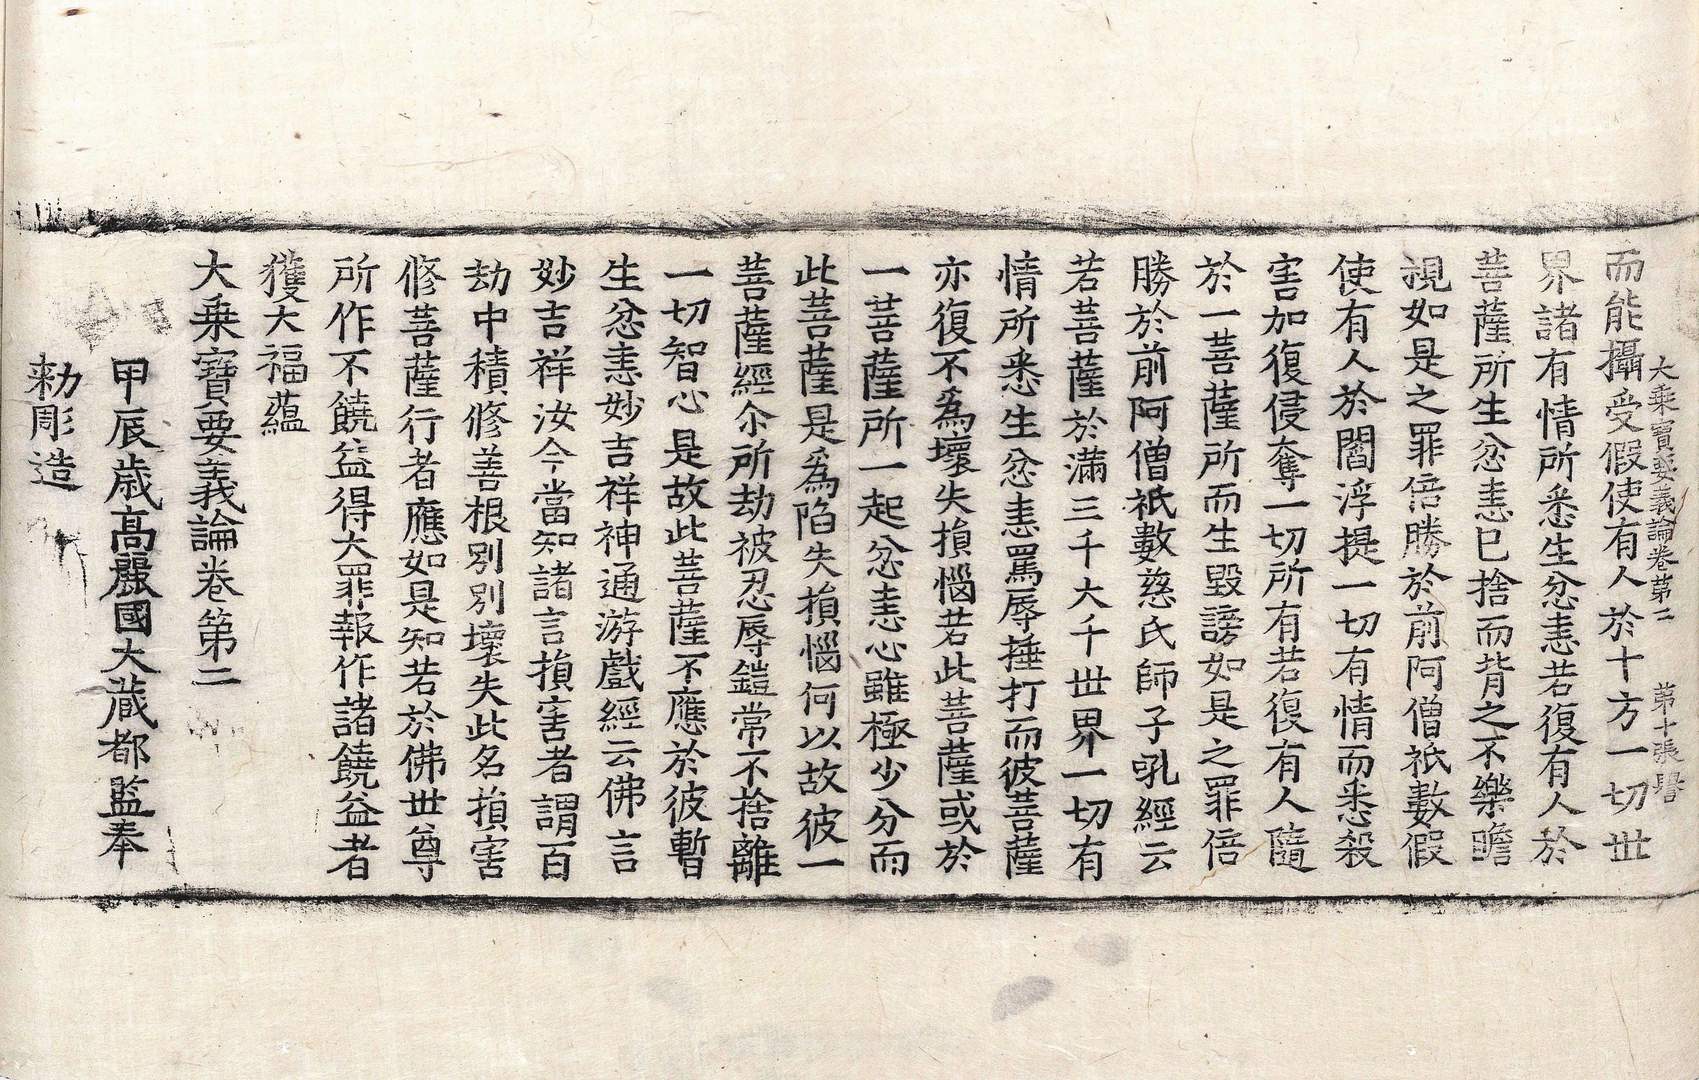 大乘寶要義論卷第二　第十張譽
而能攝受假使有人於十方一切世
界諸有情所悉生忿恚若復有人於
菩薩所生忿恚已捨而背之不樂瞻
視如是之罪倍勝於前阿僧祇數假
使有人於閻浮提一切有情而悉殺
害加復侵奪一切所有若復有人隨
於一菩薩所而生毀謗如是之罪倍
勝於前阿僧祇數慈氏師子吼經云
若菩薩於滿三千大千世界一切有
情所悉生忿恚罵辱捶打而彼菩薩
亦復不為壞失損惱若此菩薩或於
一菩薩所一起忿恚心雖極少分而
此菩薩是為陷失損惱何以故彼一
菩薩經尒所劫被忍辱鎧常不捨離
一切智心是故此菩薩不應於彼暫
生忿恚妙吉祥神通游戲經云佛言
妙吉祥汝今當知諸言損害者謂百
劫中積修善根別別壞失此名損害
修菩薩行者應如是知若於佛世尊
所作不饒益得大罪報作諸饒益者
獲大福蘊
大乘寶要義論卷第二
甲辰歲高麗國大藏都監奉
勑彫造